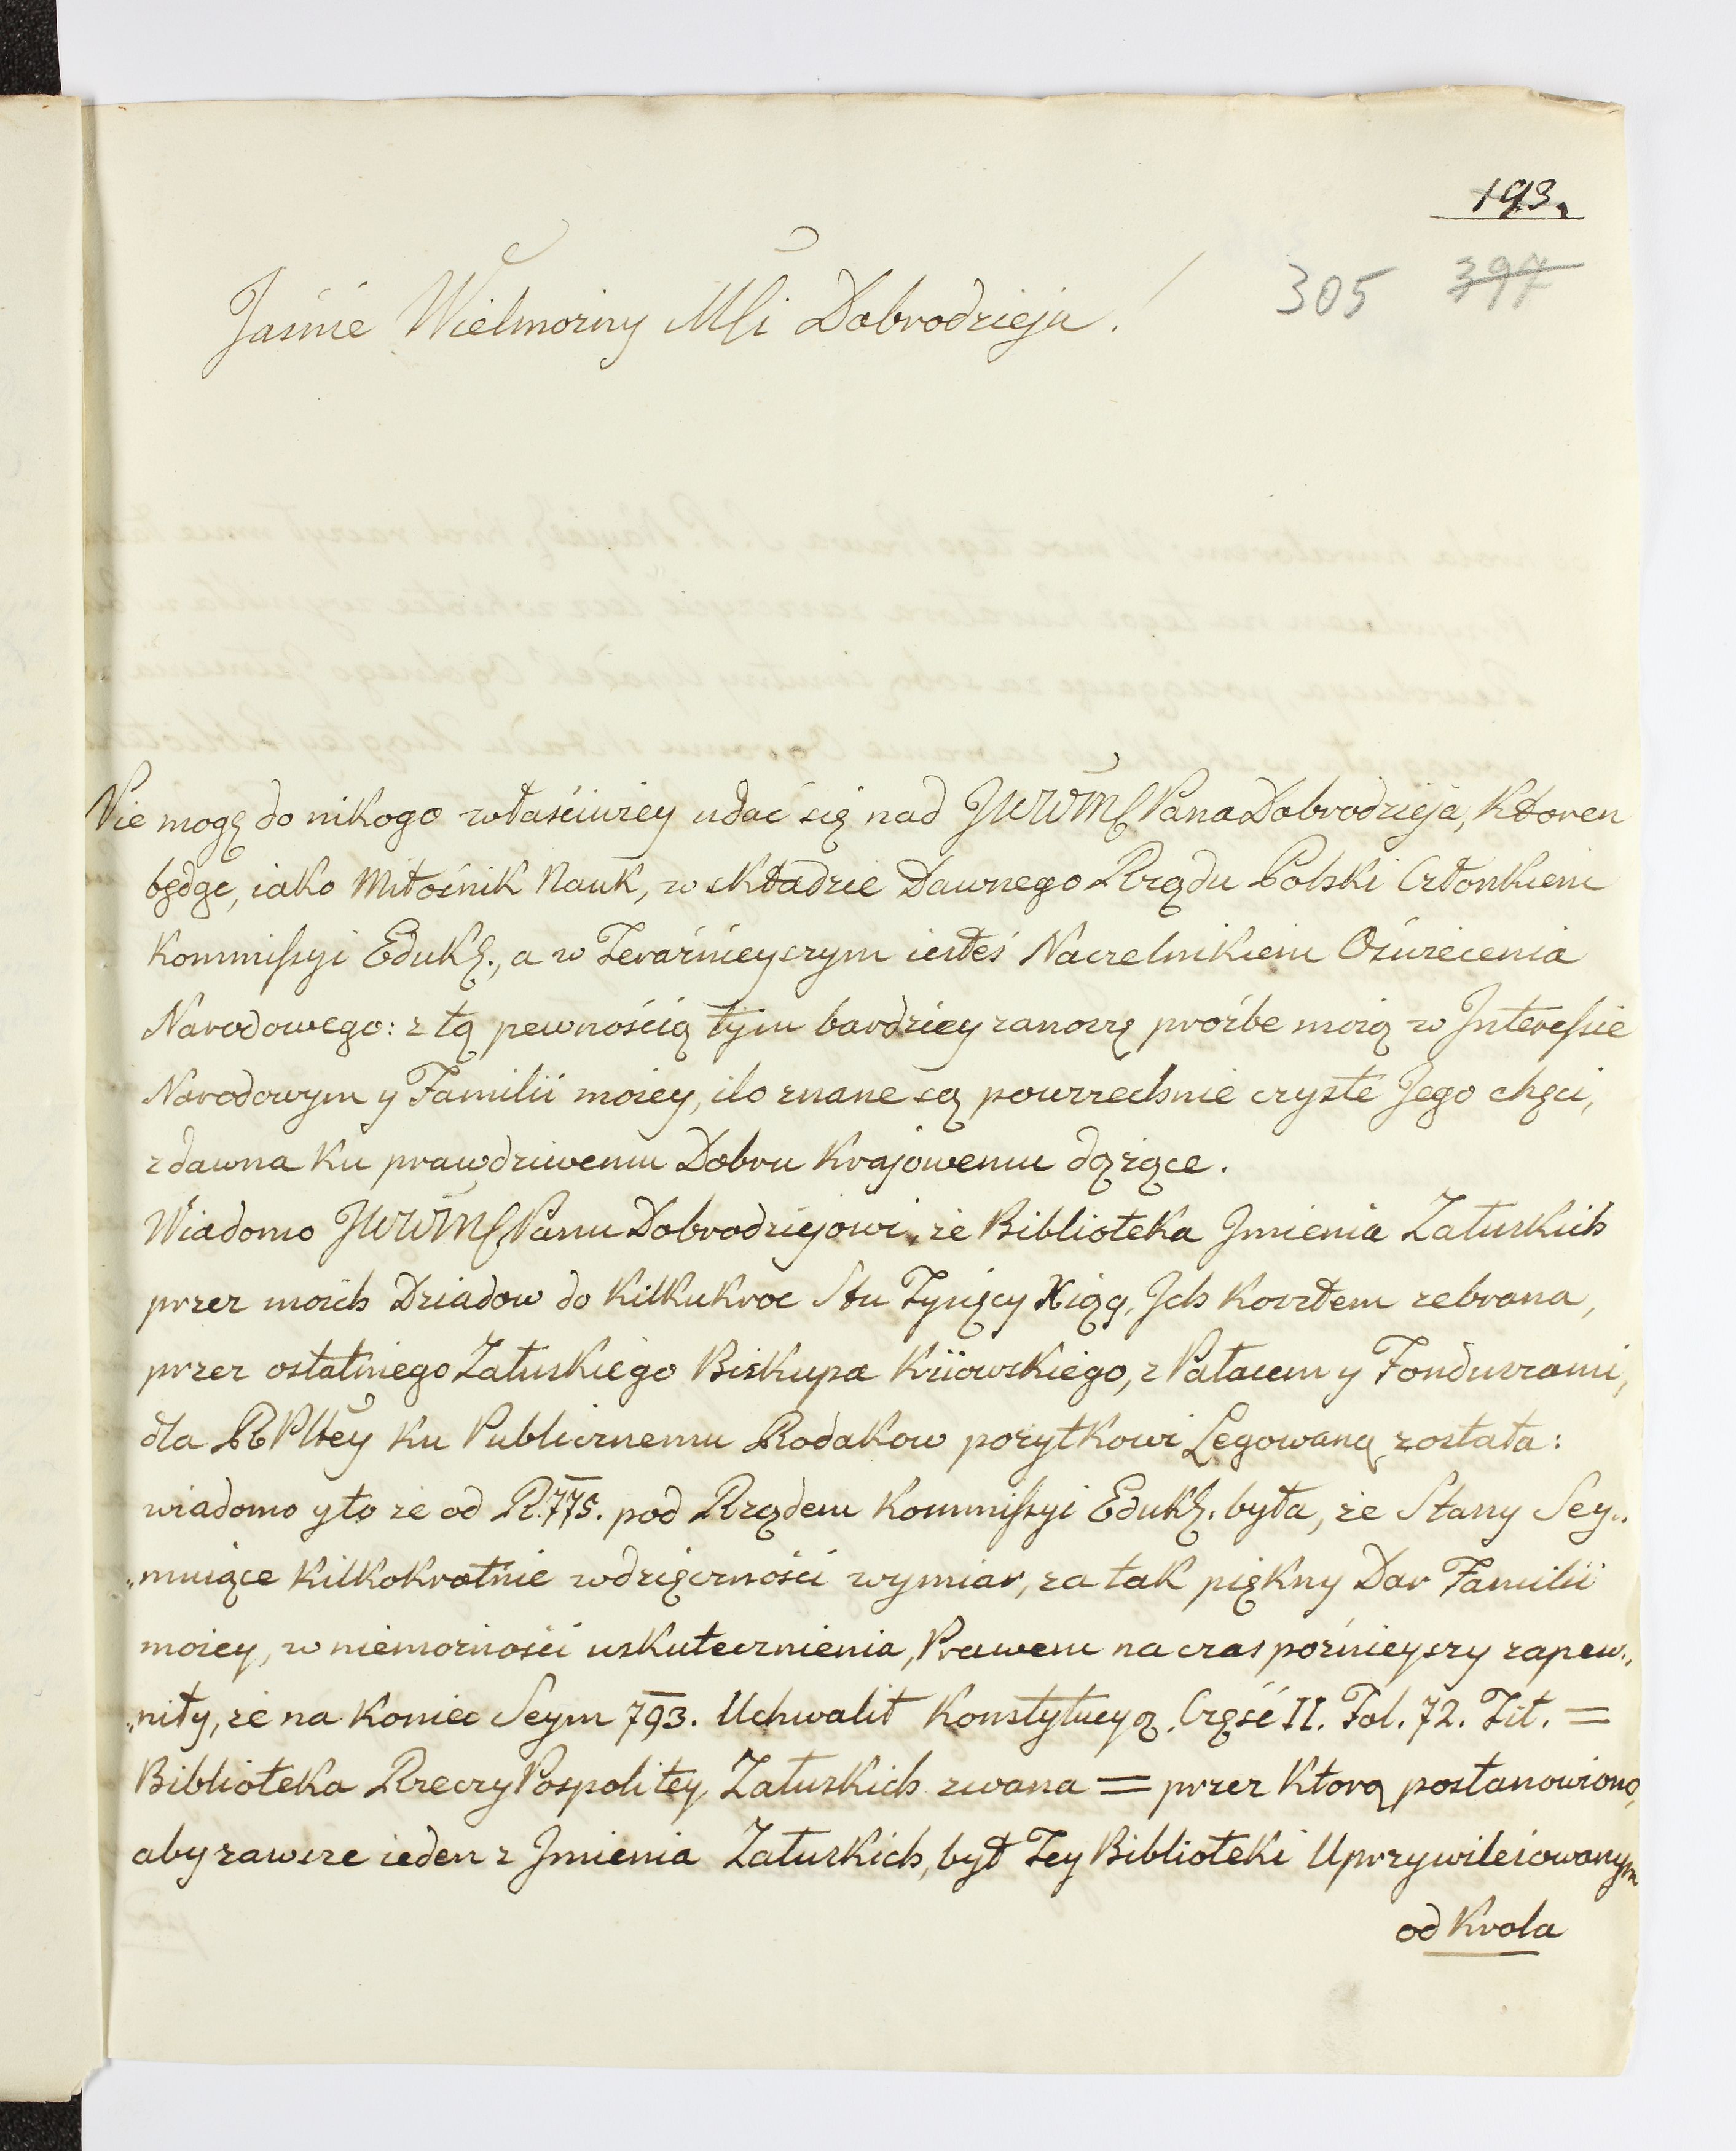 193.
305 397
Jaśnie Wielmożny Mći Dobrodzieja!
Nie mogę do nikogo właściwiey udać się nad JWWMć Pana Dobrodzieja, ktoren
będąc, iako Miłośnik Nauk, w składzie Dawnego Rządu Polski Członkiem
Kommissyi Eduk:, a w Teraźnieyszym iesteś Naczelnikiem Oświecenia
Narodowego: z tą pewnością tym bardziey zanoszę proźbe moią w Interessie
Narodowym y Familii moiey, ilo znane są powszechnie czyste Jego chęci,
zdawna ku prawdziwemu Dobru Krajowemu dążące.
Wiadomo JWWMć Panu Dobrodziejowi, że Biblioteka Jmienia Załuskich
przez moich Dziadow do kilkukroc Stu Tysięcy Xiąg, Jch kosztem zebrana,
przez ostatniego Załuskiego Biskupa Kiiowskiego, z Pałacem y Fonduszami,
dla RPltey ku Publicznemu Rodakow pożytkowi Legowaną została:
wiadomo y to że od R. 775. pod Rządem Kommissyi Eduk: była, że Stany Sey„
„muiące kilkokrotnie wdzięczności wymiar, za tak piękny Dar Familii
moiey, w niemożności uskutecznienia, Prawem na czas poźnieyszy zapew„
„niły, że na koniec Seym 793. Uchwalił Konstytucyą. Część II. Fol. 72. Tit. =
Biblioteka RzeczyPospolitey Załuskich zwana = przez ktorą postanowiono,
aby zawsze ieden z Jmienia Załuskich, był Tey Biblioteki Uprzywileiowanym
od Krola